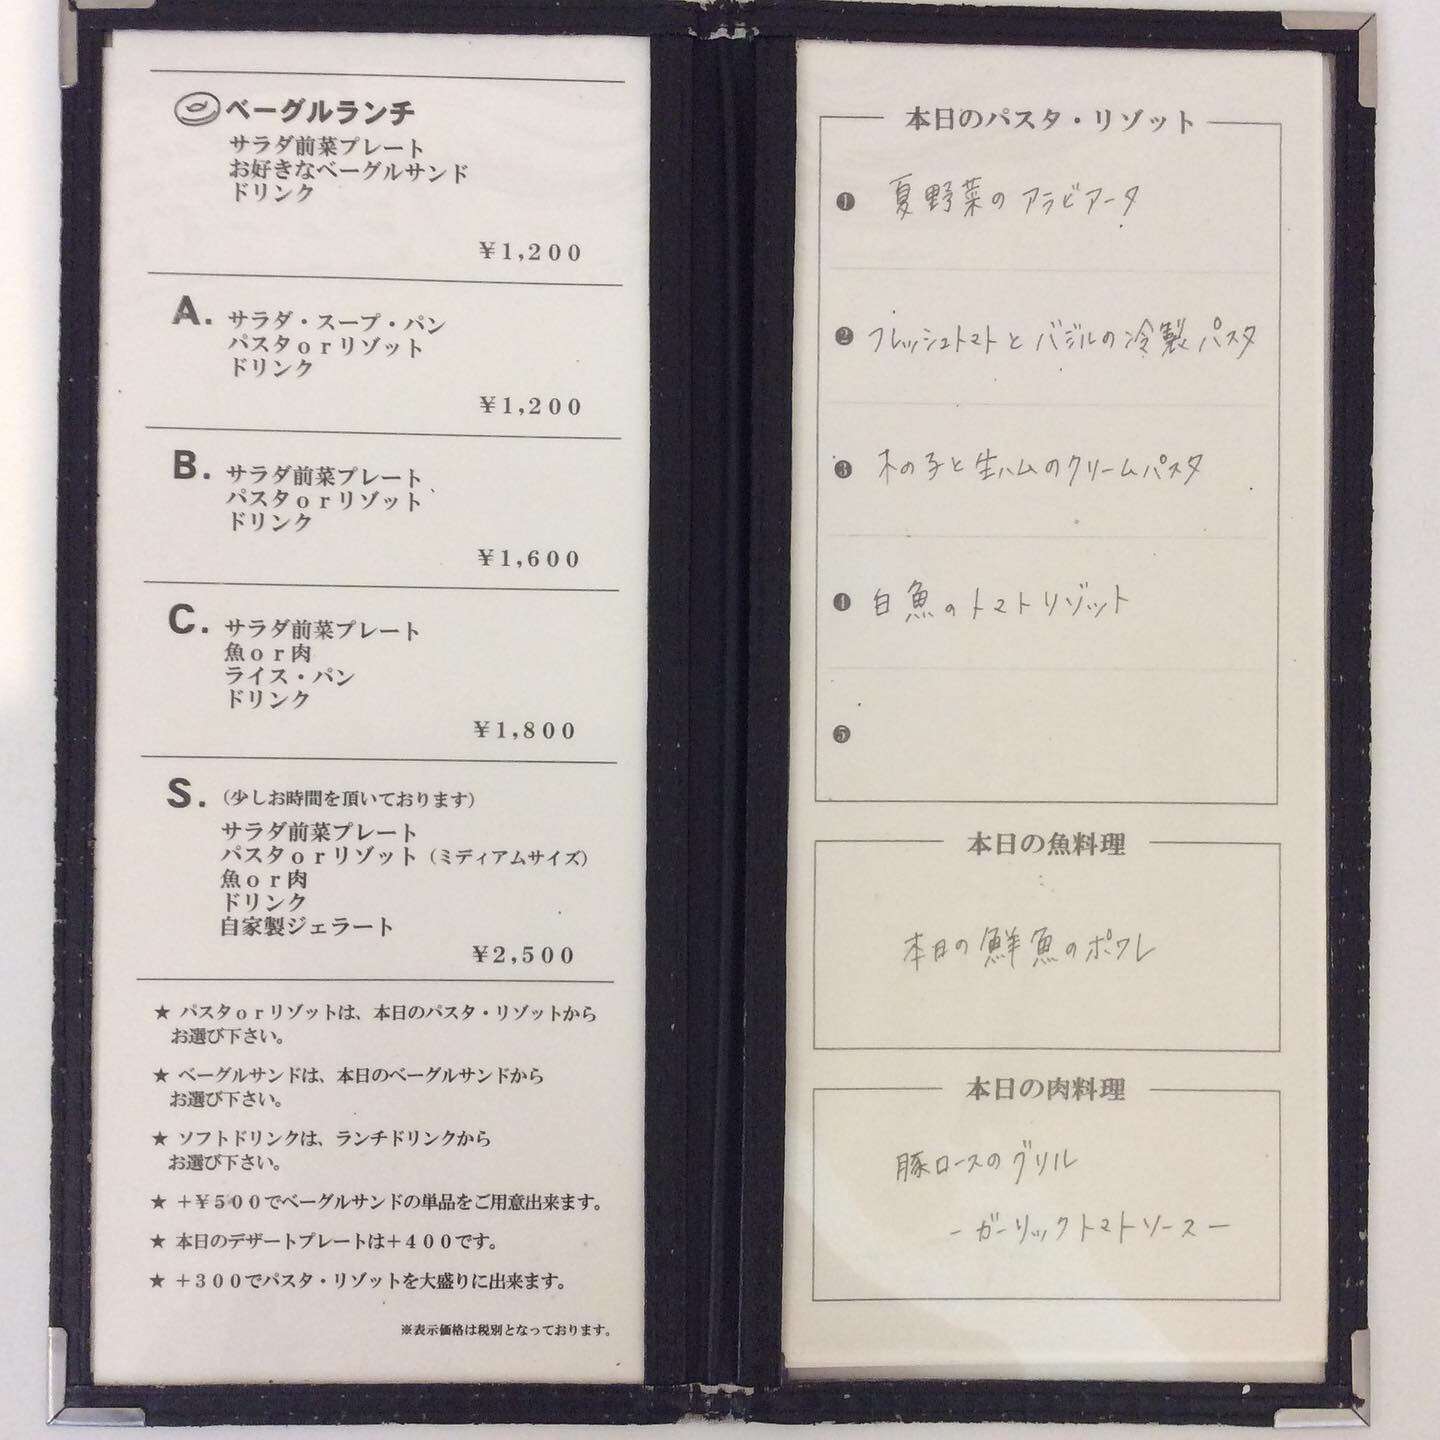 ベーグルランチ
サラダ前菜プレート
お好きなベーグルサンド
ドリンク
¥1,200
A. サラダ・スープ・パン
パスタorリゾット
ドリンク
¥1,200
B. サラダ前菜プレート
パスタorリゾット
ドリンク
¥1,600
C. サラダ前菜プレート
魚or肉
ライス・パン
ドリンク
¥1,800
S. (少しお時間を頂いております)
サラダ前菜プレート
パスタorリゾット(ミディアムサイズ)
魚or肉
ドリンク
自家製ジェラート
¥2,500
★ パスタorリゾットは、本日のパスタ・リゾットから
お選び下さい。
★ ベーグルサンドは、本日のベーグルサンドから
お選び下さい。
★ ソフトドリンクは、ランチドリンクから
お選び下さい。
★ +¥500でベーグルサンドの単品をご用意出来ます。
★ 本日のデザートプレートは+400です。
★ +300でパスタ・リゾットを大盛りに出来ます。
※表示価格は税別となっております。
本日のパスタ・リゾット
❶ 夏野菜のアラビアータ
❷ フレッシュトマトとバジルの冷製パスタ
❸ 木の子と生ハムのクリームパスタ
❹ 白魚のトマトリゾット
❺
本日の魚料理
本日の鮮魚のポワレ
本日の肉料理
豚ロースのグリル
-ガーリックトマトソース-